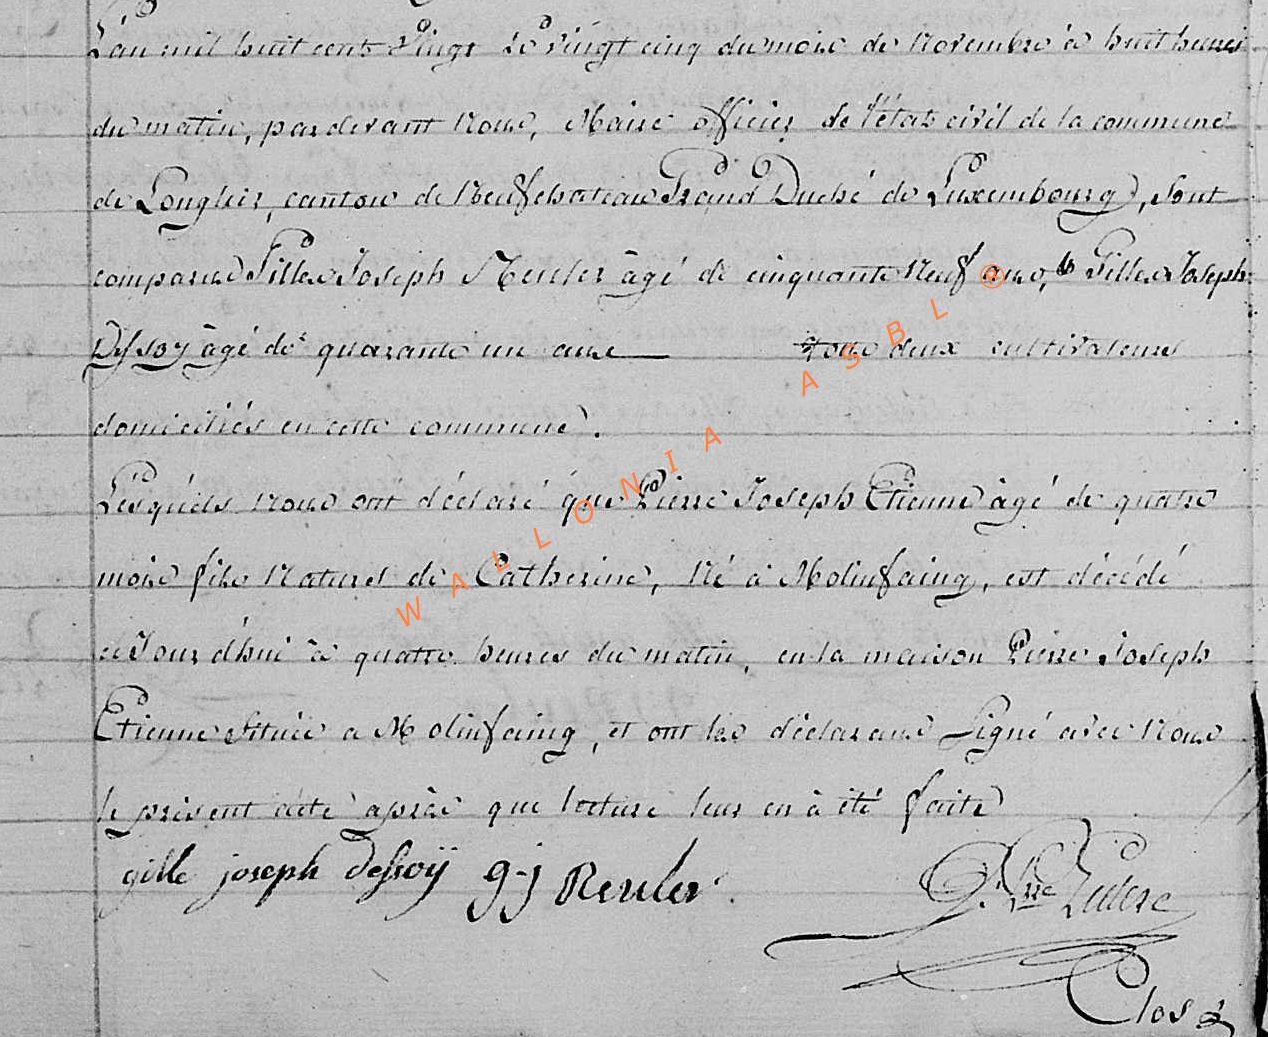 L'an mil huit cent vingt le vingt cinq du mois de Novembre à huit heures
du matin, par devant Nous, Maire officier de l'état civil de la commune
de Longlier, canton de Neufchateau Grand Duché de Luxembourg, sont
comparus Gilles Joseph Reuler âgé de cinquante Neuf ans, & Gilles Joseph
Dessoy âgé de quarante un ans tous deux cultivateurs
domiciliés en cette commune.
Lesquels Nous ont déclaré que Pierre Joseph Etienne âgé de quatre
mois fils Naturel de Catherine, Né à Molinfaing, est décédé
ce Jourd'hui à quatre heures du matin, en la maison Pierre Joseph
Etienne située a Molinfaing, et ont les déclarans Signé avec Nous
le présent acte après que lecture leur en à été faite
gille joseph dessoÿ g-j Reuler
Clos
WALLONIA ASBL ©